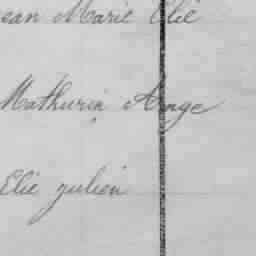 ean Marie Elie
Mathurin Ange
Elie julien